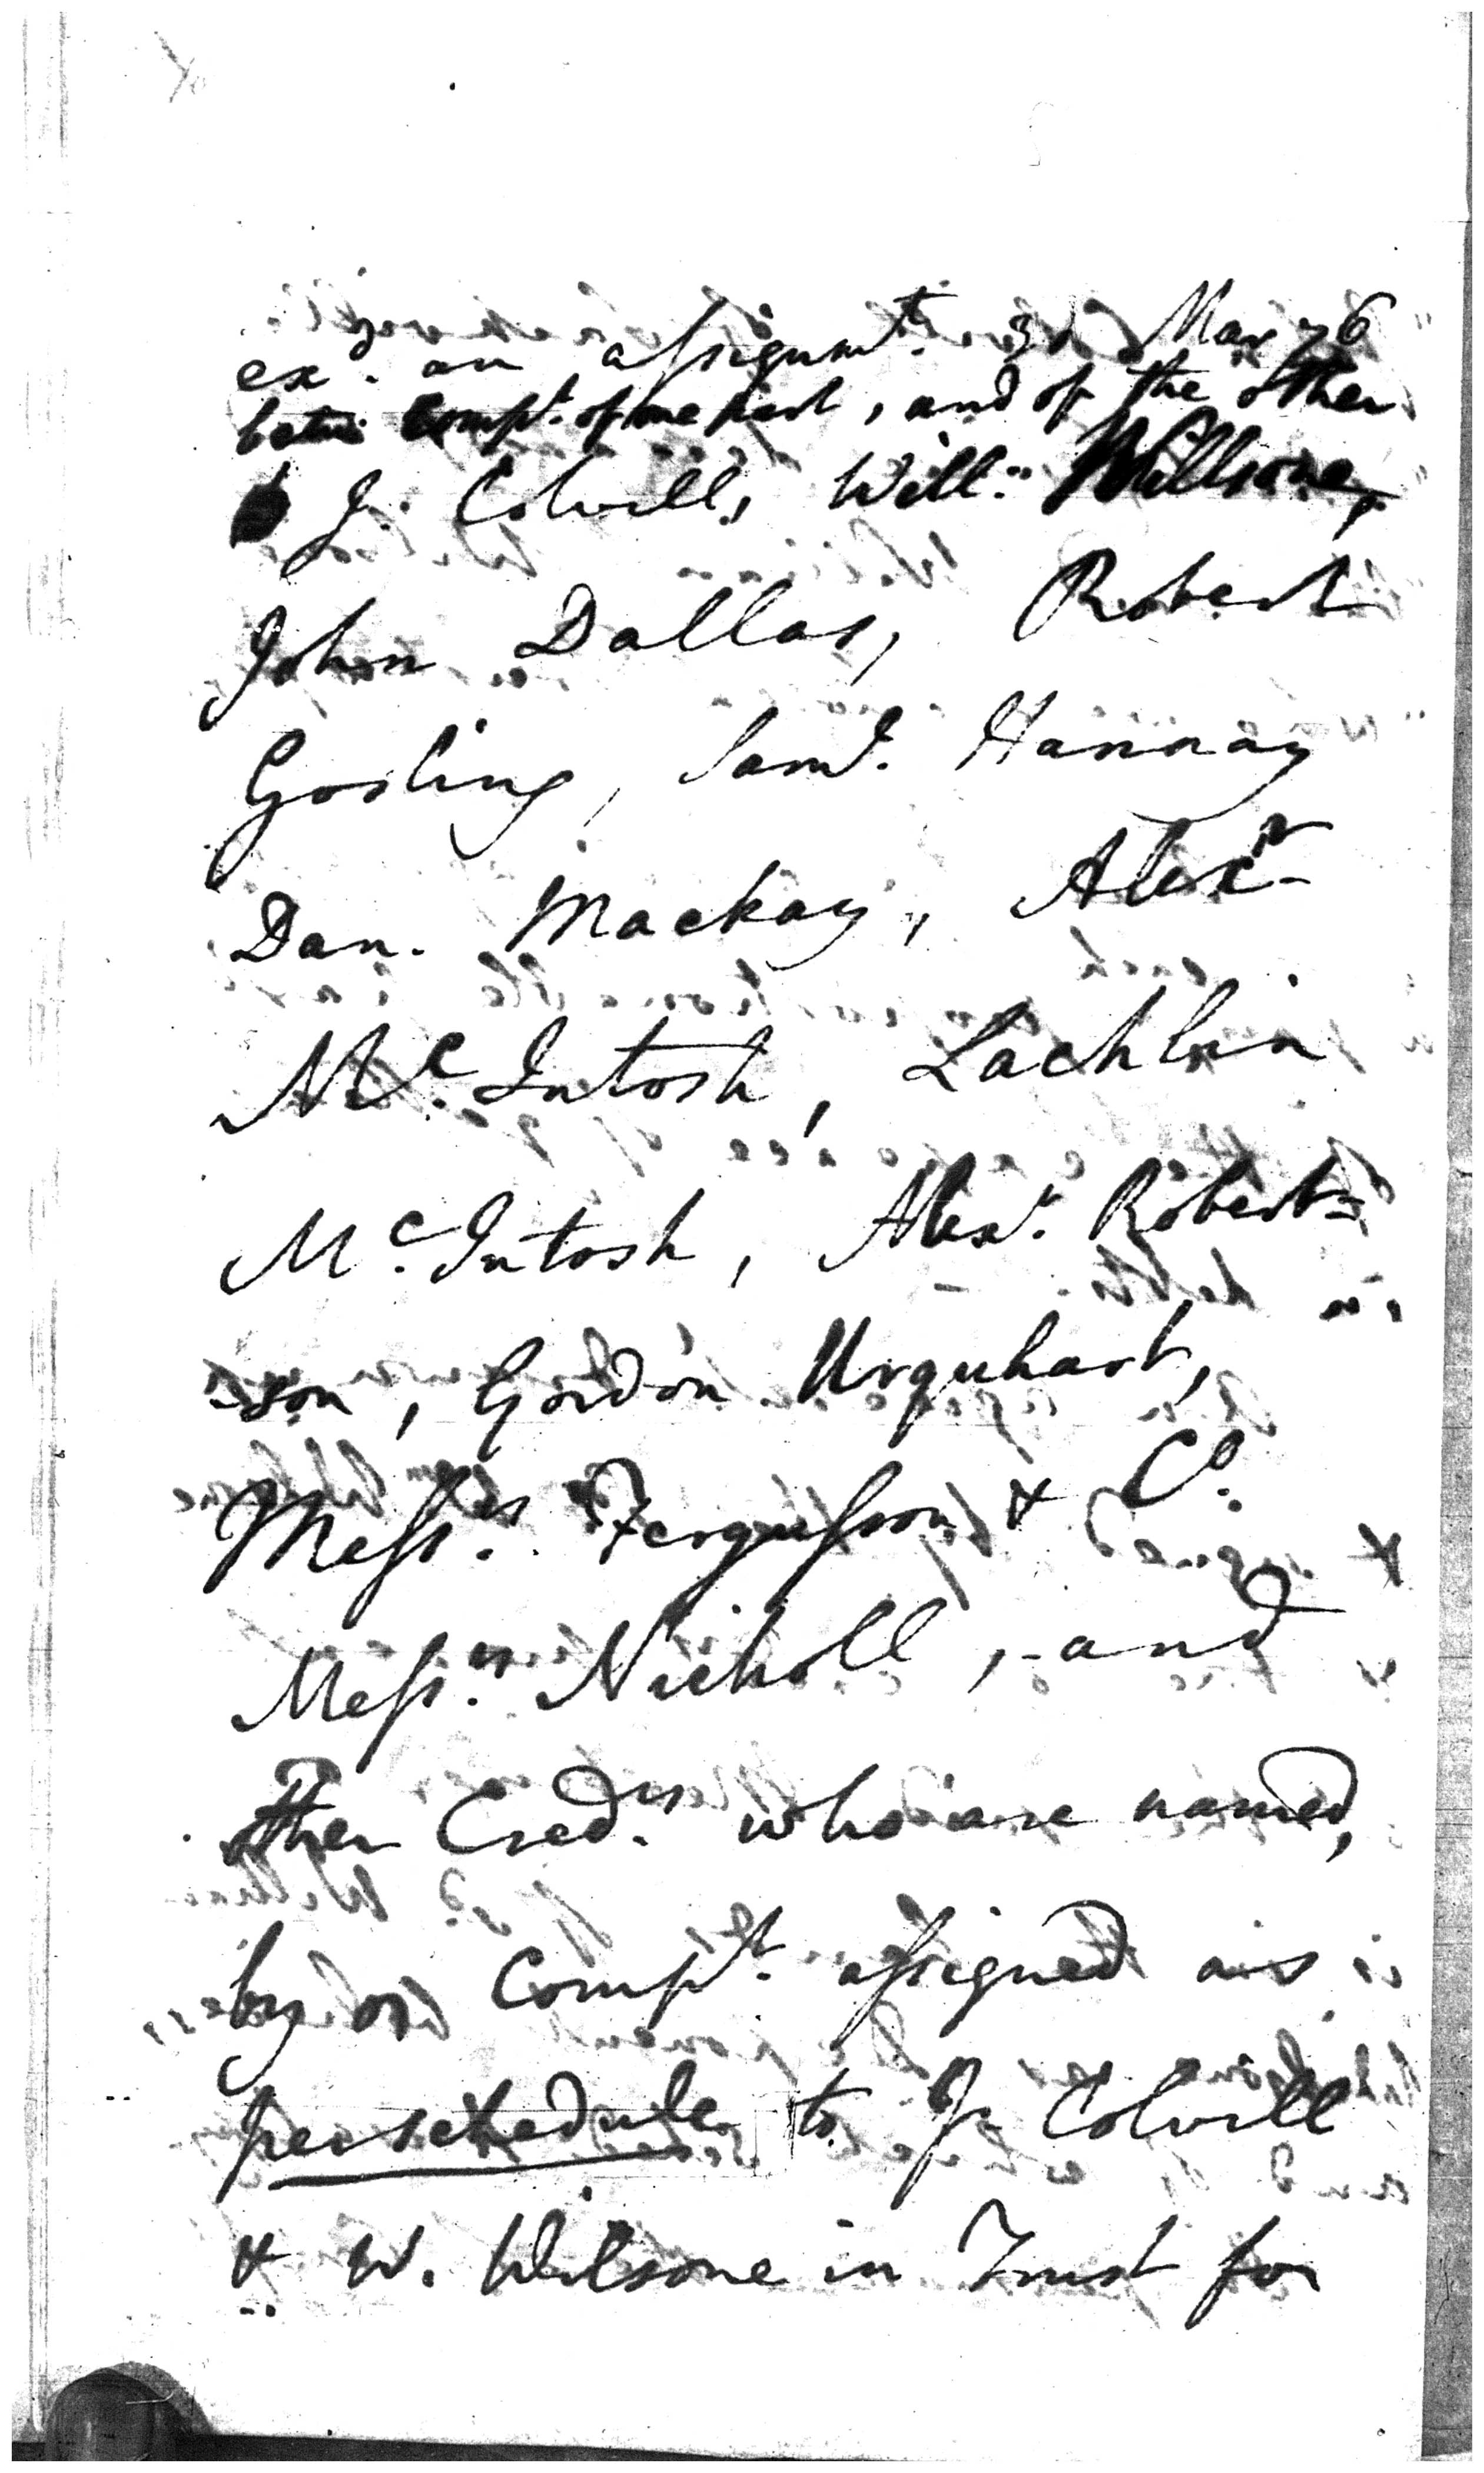 exd. an assignmt. 3d Mar 76
betw Complt. of one part, and of the other
J. Colvill, Willm. Willsone,
John Dallas, Robert
Gosling, Saml. Hannay
Dan. Mackay, Alexr
Mc.Intosh, Lachlin
Mc.Intosh, Alexr. Robert=
=son, Gordon Urquhart,
Messrs. Fergusson & Co.
Messrs. Nicholl, and
other Credrs. who are named,
by wh Complt. assigned as
per schedule to J. Colvill
& W. Wilsone in Trust for